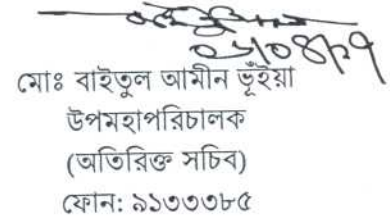 মোঃ বাইতুল আমীন ভূঁইয়া
উপমহাপরিচালক
(অতিরিক্ত সচিব)
ফোন: ৯১৩৩৩৮৫